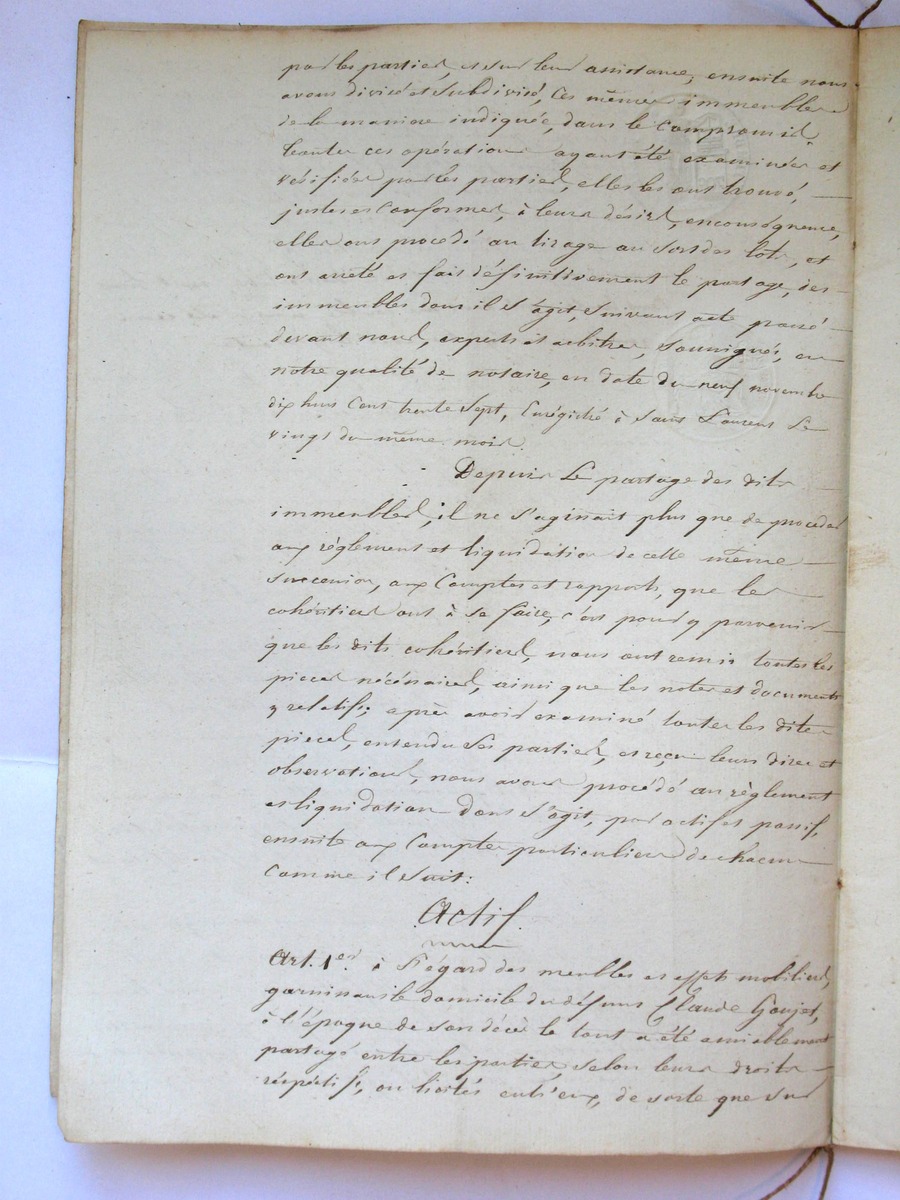 par les parties, et sur leur assistance, ensuite nous
avons divisé et subdivisé, ces mêmes immeubles
de la manière indiquée, dans le compromis
toutes ces opérations ayant été examinées et
vérifiées par les parties, elles les ont trouvé, —
justes et conformes, à leurs désirs, en conséquence,
elles ont procédé au tirage au sort des lots, et
ont arrêté et fait définitivement le partage, des —
immeubles dont il s'agit, suivant acte passé —
devant nous, experts et arbitres, soussignés, en
notre qualité de notaire, en date du neuf novembre
dix huit cent trente sept, enrégistré à Saint Laurent le
vingt du même mois.
Depuis le partage des dits —
immeubles, il ne s'agissait plus que de procéder
aux règlement et liquidation de cette même —
succession, aux comptes et rapports, que les —
cohéritiers ont à se faire, c'est pour y parvenir —
que les dits cohéritiers, nous ont remis toutes les
pièces nécéssaires, ainsi que les notes et documents
y relatifs; après avoir examiné toutes les dites
pièces, entendu les parties, et reçu leurs dires et
observations, nous avons procédé au règlement
et liquidation dont s'agit, par actif et passif,
ensuite aux comptes particuliers de chacun —
comme il suit:
Actif.
Art. 1er. à l'égard des meubles et effets mobiliers,
garnissant le domicile du défunt Claude Goujet,
à l'époque de son décès le tout a été amiablement
partagé entre les parties, selon leurs droits —
réspectifs, ou licités entr'eux, de sorte que sur